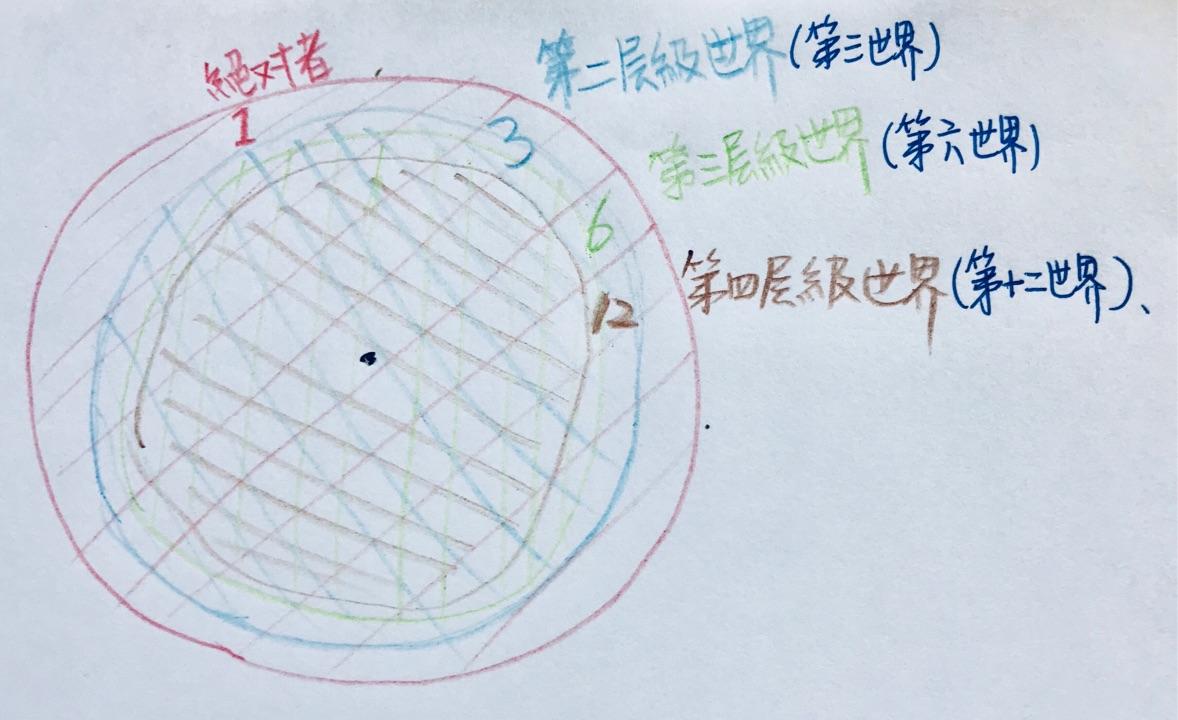 絕对者
1
第二层級世界(第三世界)
3
第三层級世界(第六世界)
6
第四层級世界(第十二世界)、
12